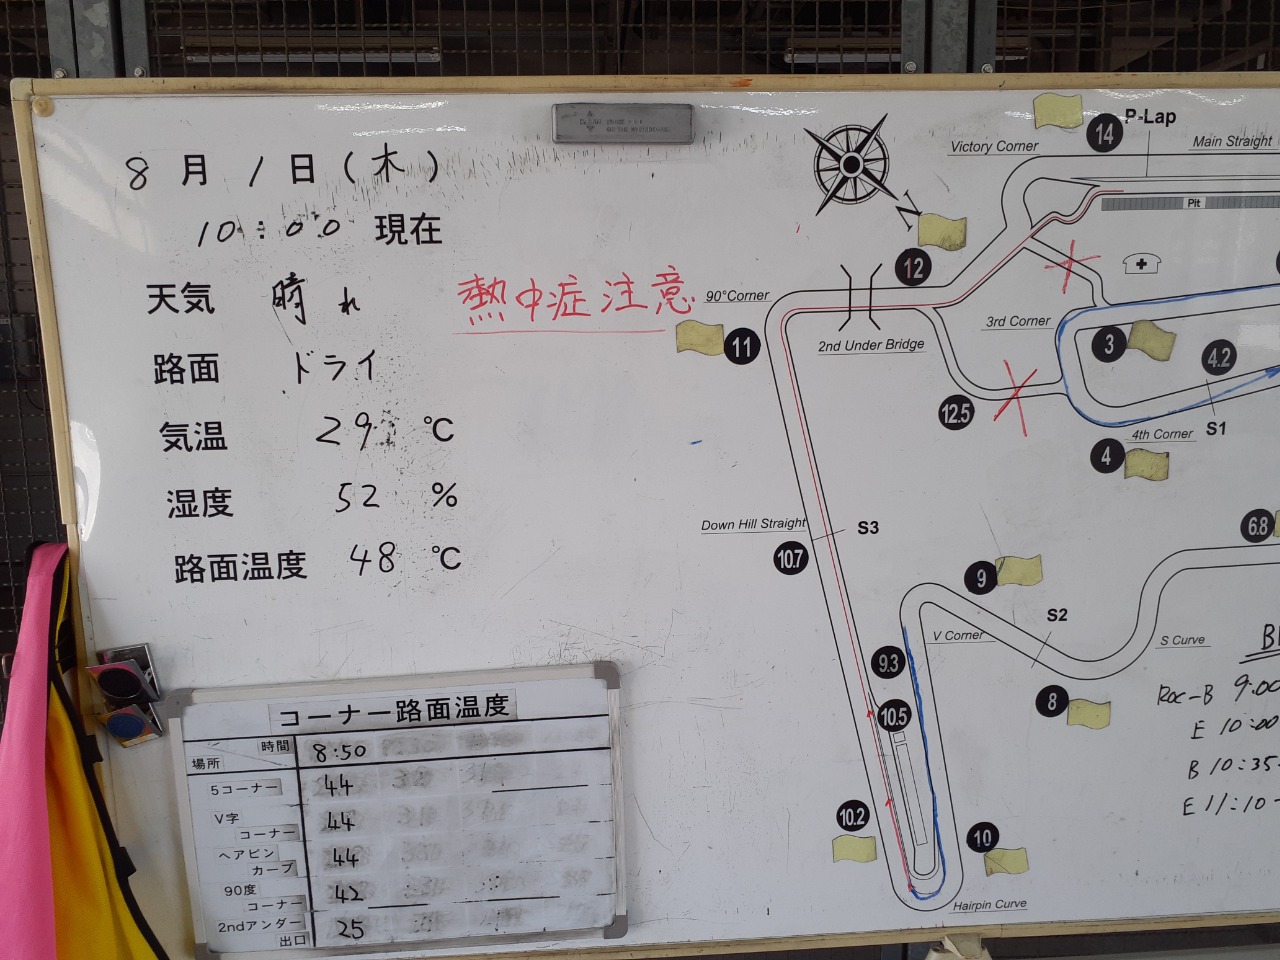 8月1日(木)
10:00 現在
天気 晴れ
路面 ドライ
気温 29 ℃
湿度 52 %
路面温度 48 ℃
熱中症注意
コーナー路面温度
時間 8:50
場所
5コーナー 44
V字コーナー 44
ヘアピンカーブ 44
90度コーナー 42
2ndアンダー出口 25
N
14
P-Lap
Victory Corner
Main Straight
Pit
12
90°Corner
11
2nd Under Bridge
3rd Corner
3
4.2
12.5
4th Corner
S1
4
Down Hill Straight
S3
10.7
6.8
9
S2
V Corner
S Curve
9.3
8
10.5
10.2
10
Hairpin Curve
Roc-B 9:00
E 10:00
B 10:35
E 11:10-